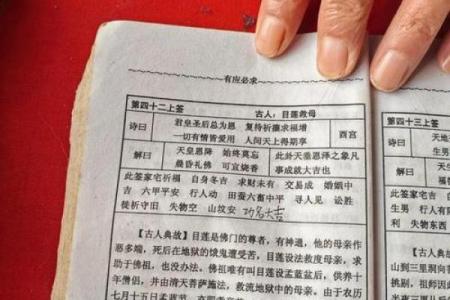 有应必求
第四十二上签 古人：目莲救母
诗曰 君皇圣后总为恩 复待祈禳求福增
一切有情皆爱用 人间天上得期享 酉宫
解曰 天垂恩降 始终莫忘 此卦天垂恩泽之象凡
晨昏礼佛 可宜烧香 事成就大吉也
此签家宅祈福 自身冬吉 求财未有 交易成 婚姻中
吉 六甲平安 行人动 田蚕六畜中平 寻人见 讼胜
徒祈守旧 失物空 山坟安 功名大吉
【古人典故】目莲是佛门的尊者，有神通，他的母亲作
恶多端，死后在地狱的烧鬼遭受苦，目莲设法救度母亲，求
助于佛祖，也没办法。佛祖唯有叫目莲设孟蓝盆后，供养十
年僧侣，并由清天菩萨施法，救流地狱中的母亲。由于农历
七月十五日孟蓝节
第四十三上签
诗曰 天地
解曰 天
生男
此签家宅吉
利 行人
失物东西
【古人
山到三里洞
挑剔，祖师因